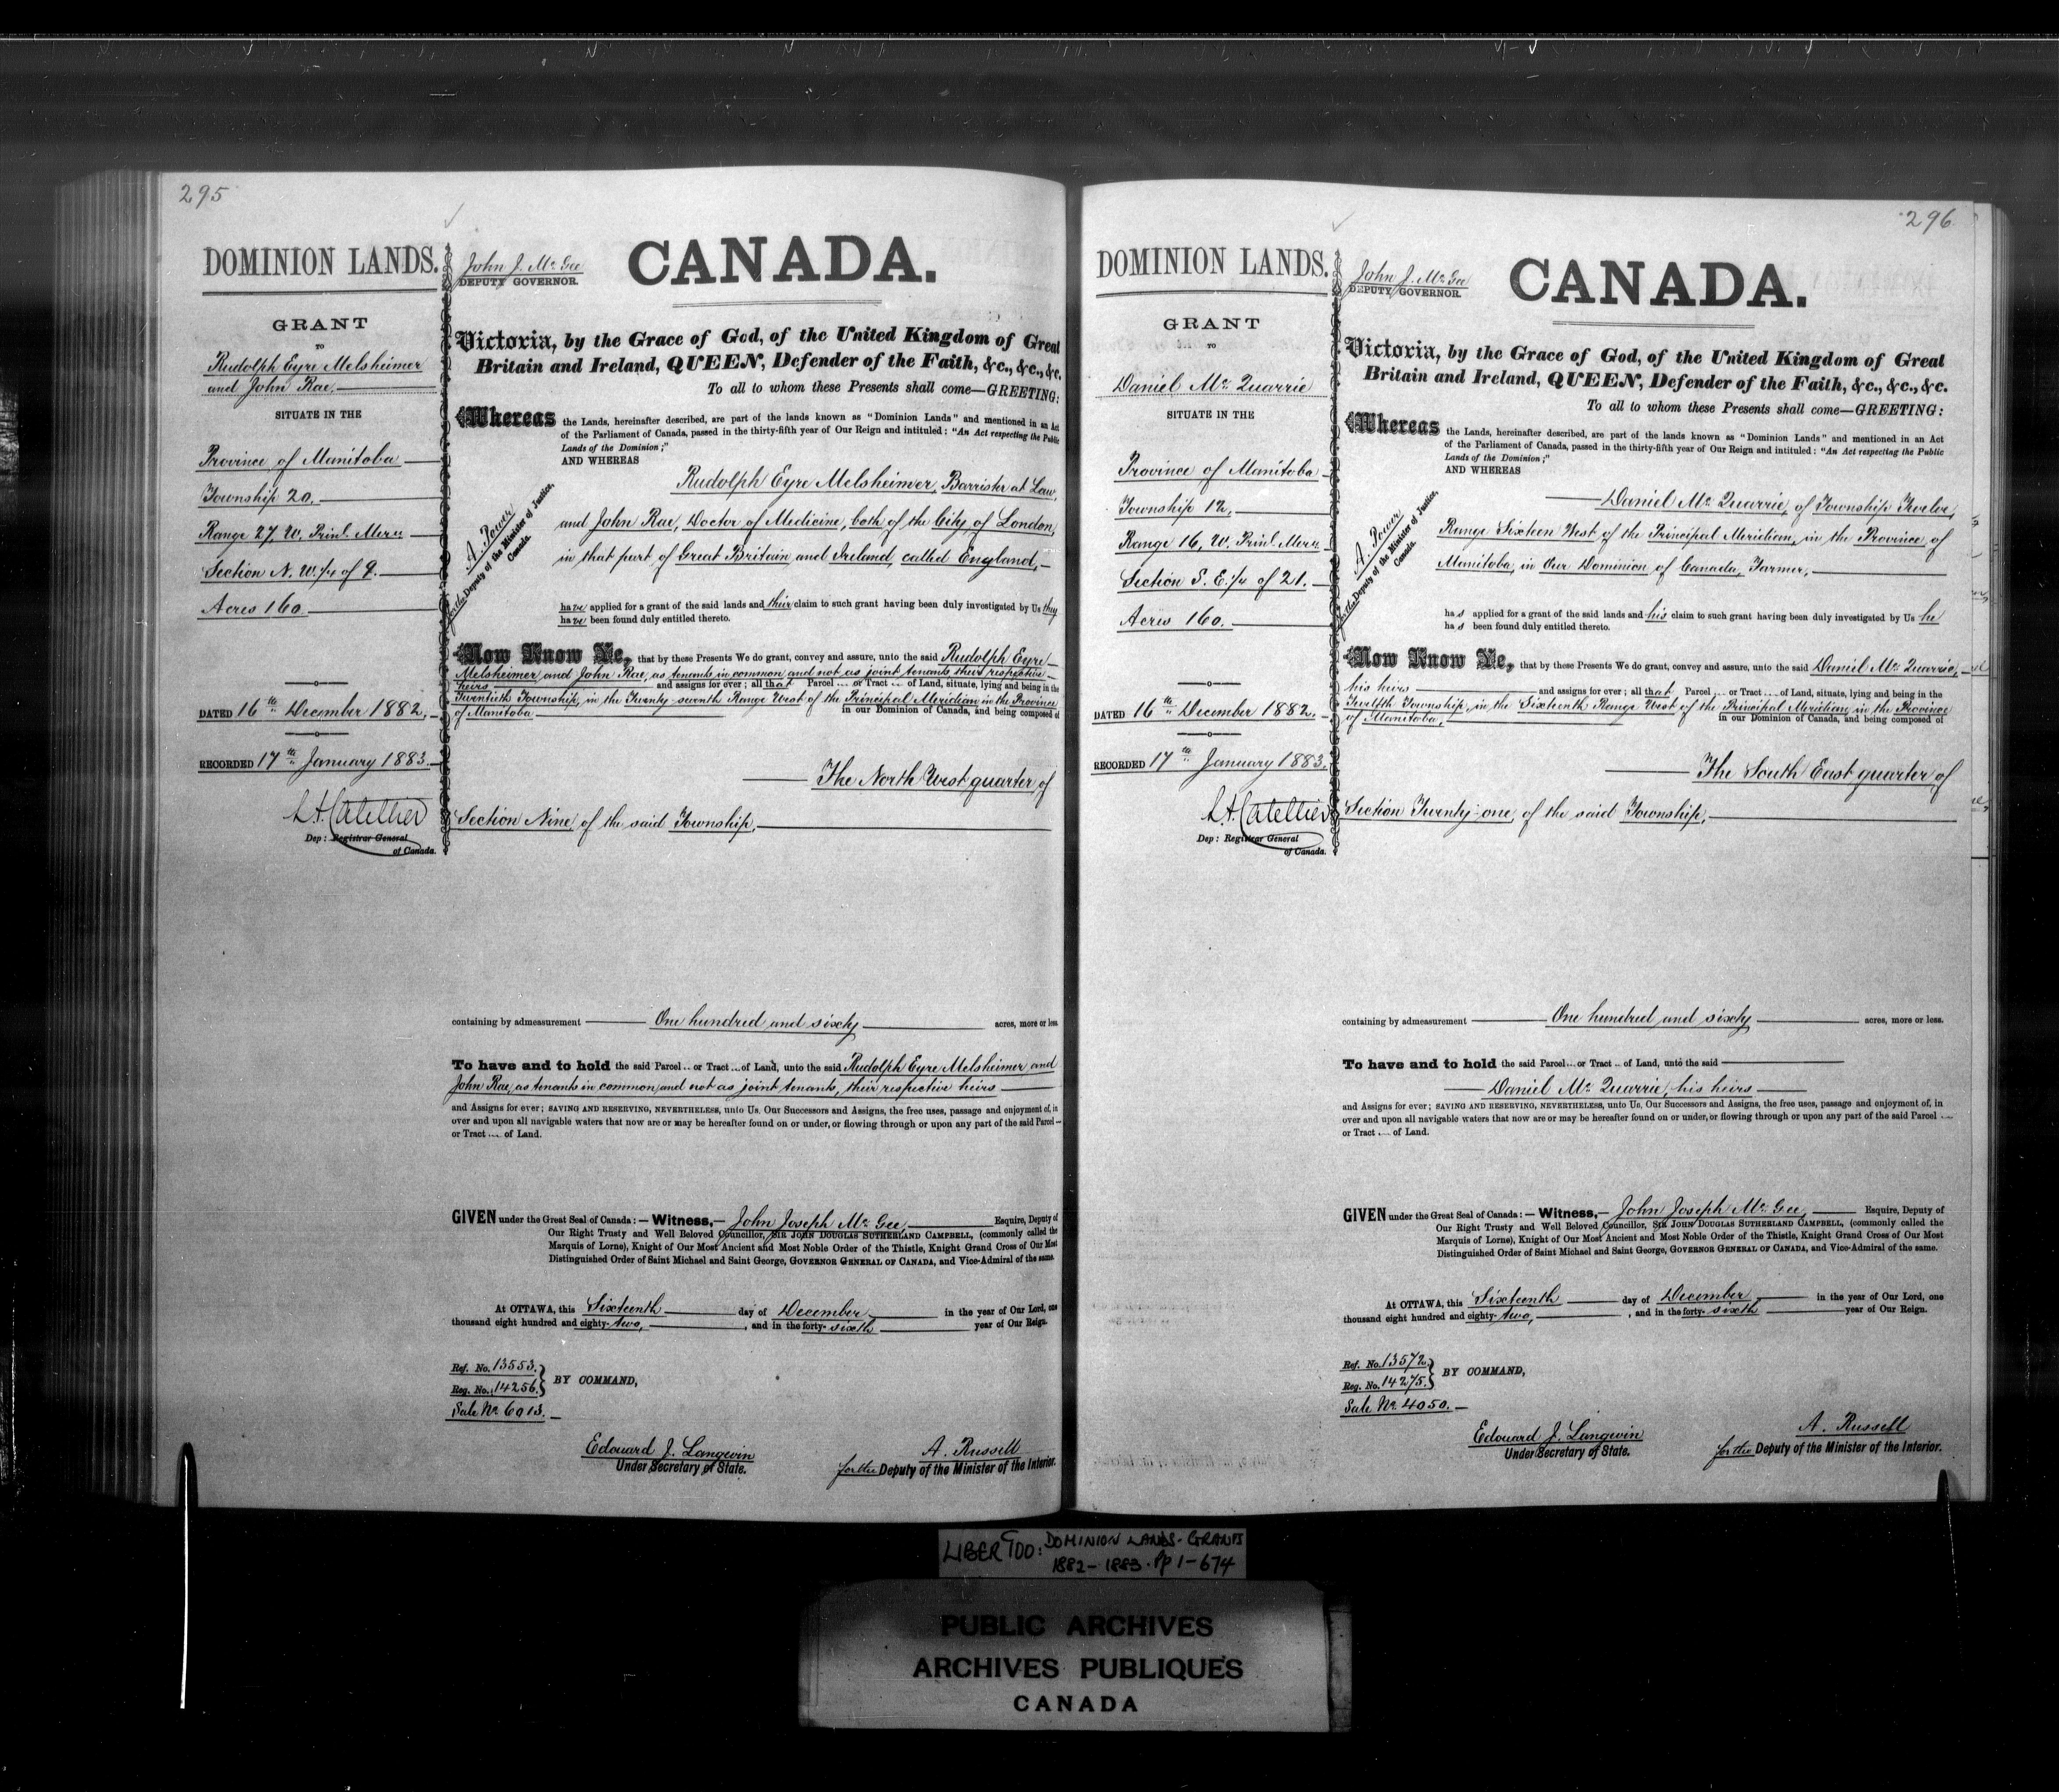 295
DOMINION LANDS.
GRANT
TO
Rudolph Eyre Melsheimer
and John Rae,
SITUATE IN THE
Province of Manitoba
Township 20.
Range 27, W. Prinl. Mern
Section N. W. 1/4 of 9.
Acres 160.
DATED 16th December 1882.
RECORDED 17th January 1883.
L.A. Catellier
Dep: Registrar General
of Canada.
John J. McGee
DEPUTY GOVERNOR.
CANADA.
Victoria, by the Grace of God, of the United Kingdom of Great
Britain and Ireland, QUEEN, Defender of the Faith, &c., &c., &c.
To all to whom these Presents shall come—GREETING:
Whereas the Lands, hereinafter described, are part of the lands known as "Dominion Lands" and mentioned in an Act
of the Parliament of Canada, passed in the thirty-fifth year of Our Reign and intituled: "An Act respecting the Public
Lands of the Dominion;"
AND WHEREAS
Rudolph Eyre Melsheimer, Barrister at Law,
and John Rae, Doctor of Medicine, both of the City of London,
in that part of Great Britain and Ireland, called England,
A. Power
for the Deputy of the Minister of Justice,
Canada.
have applied for a grant of the said lands and their claim to such grant having been duly investigated by Us they
have been found duly entitled thereto.
Now Know Ye, that by these Presents We do grant, convey and assure, unto the said Rudolph Eyre
Melsheimer and John Rae, as tenants in common and not as joint tenants their respective
heirs and assigns for ever; all that Parcel ... or Tract ... of Land, situate, lying and being in the
Twentieth Township, in the Twenty seventh Range West of the Principal Meridian in the Province
of Manitoba in our Dominion of Canada, and being composed of
The North West quarter of
Section Nine, of the said Township,
containing by admeasurement One hundred and sixty acres, more or less.
To have and to hold the said Parcel .. or Tract ... of Land, unto the said Rudolph Eyre Melsheimer and
John Rae, as tenants in common and not as joint tenants, their respective heirs
and Assigns for ever; SAVING AND RESERVING, NEVERTHELESS, unto Us, Our Successors and Assigns, the free uses, passage and enjoyment of, in
over and upon all navigable waters that now are or may be hereafter found on or under, or flowing through or upon any part of the said Parcel
or Tract .... of Land.
GIVEN under the Great Seal of Canada:— Witness,— John Joseph McGee, Esquire, Deputy of
Our Right Trusty and Well Beloved Councillor, SIR JOHN DOUGLAS SUTHERLAND CAMPBELL, (commonly called the
Marquis of Lorne), Knight of Our Most Ancient and Most Noble Order of the Thistle, Knight Grand Cross of Our Most
Distinguished Order of Saint Michael and Saint George, GOVERNOR GENERAL OF CANADA, and Vice-Admiral of the same.
At OTTAWA, this Sixteenth day of December in the year of Our Lord, one
thousand eight hundred and eighty-two, , and in the forty-sixth year of Our Reign.
Ref. No. 13553.
Reg. No. 14256. BY COMMAND,
Sale No. 6013.
Edouard J. Langevin
Under Secretary of State.
A. Russell
for the Deputy of the Minister of the Interior.
296
DOMINION LANDS.
GRANT
TO
Daniel McQuarrie
SITUATE IN THE
Province of Manitoba
Township 12,
Range 16, W. Prinl. Mern
Section S. E. 1/4 of 21.
Acres 160.
DATED 16th December 1882.
RECORDED 17th January 1883.
L.A. Catellier
Dep: Registrar General
of Canada.
John J. McGee
DEPUTY GOVERNOR.
CANADA.
Victoria, by the Grace of God, of the United Kingdom of Great
Britain and Ireland, QUEEN, Defender of the Faith, &c., &c., &c.
To all to whom these Presents shall come—GREETING:
Whereas the Lands, hereinafter described, are part of the lands known as "Dominion Lands" and mentioned in an Act
of the Parliament of Canada, passed in the thirty-fifth year of Our Reign and intituled: "An Act respecting the Public
Lands of the Dominion;"
AND WHEREAS
Daniel McQuarrie, of Township Twelve,
Range Sixteen West of the Principal Meridian, in the Province of
Manitoba, in Our Dominion of Canada, Farmer,
A. Power
for the Deputy of the Minister of Justice,
Canada.
has applied for a grant of the said lands and his claim to such grant having been duly investigated by Us he
has been found duly entitled thereto.
Now Know Ye, that by these Presents We do grant, convey and assure, unto the said Daniel McQuarrie,
his heirs and assigns for ever; all that Parcel ... or Tract ... of Land, situate, lying and being in the
Twelfth Township, in the Sixteenth Range West of the Principal Meridian, in the Province
of Manitoba, in our Dominion of Canada, and being composed of
The South East quarter of
Section Twenty-one, of the said Township,
containing by admeasurement One hundred and sixty acres, more or less.
To have and to hold the said Parcel ... or Tract .. of Land, unto the said
Daniel McQuarrie, his heirs
and Assigns for ever; SAVING AND RESERVING, NEVERTHELESS, unto Us, Our Successors and Assigns, the free uses, passage and enjoyment of, in
over and upon all navigable waters that now are or may be hereafter found on or under, or flowing through or upon any part of the said Parcel
or Tract .... of Land.
GIVEN under the Great Seal of Canada:— Witness,— John Joseph McGee, Esquire, Deputy of
Our Right Trusty and Well Beloved Councillor, SIR JOHN DOUGLAS SUTHERLAND CAMPBELL, (commonly called the
Marquis of Lorne), Knight of Our Most Ancient and Most Noble Order of the Thistle, Knight Grand Cross of Our Most
Distinguished Order of Saint Michael and Saint George, GOVERNOR GENERAL OF CANADA, and Vice-Admiral of the same.
At OTTAWA, this Sixteenth day of December in the year of Our Lord, one
thousand eight hundred and eighty-two, , and in the forty-sixth year of Our Reign.
Ref. No. 13572.
Reg. No. 14275. BY COMMAND,
Sale No. 4050.
Edouard J. Langevin
Under Secretary of State.
A. Russell
for the Deputy of the Minister of the Interior.
DOMINION LANDS - GRANTS
1882 - 1883. Pp 1-674
PUBLIC ARCHIVES
ARCHIVES PUBLIQUES
CANADA